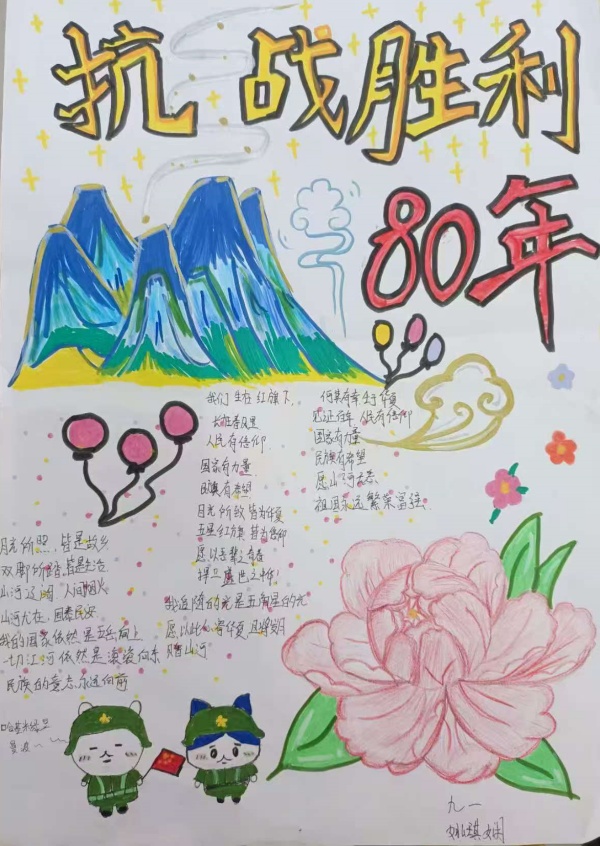 抗战胜利
80年
我们生在红旗下,
长在春风里
人民有信仰
国家有力量
民族有希望
目光所致 皆为华夏
五星红旗 皆为信仰
愿以吾辈之青春
捍卫盛世之中华
我追随的光是五角星的光
愿以此心寄华夏,且将岁月
赠山河
何其有幸 生于华夏
见证百年 人民有信仰
国家有力量
民族有希望
愿山河无恙
祖国永远繁荣富强
月光所照,皆是故乡
双脚所踏,皆是生活
山河辽阔,人间烟火
山河尤在,国泰民安
我的国家依然是五岳向上
一切江河依然是滚滚向东
民族的意志永远向前
九一
姚琪娴